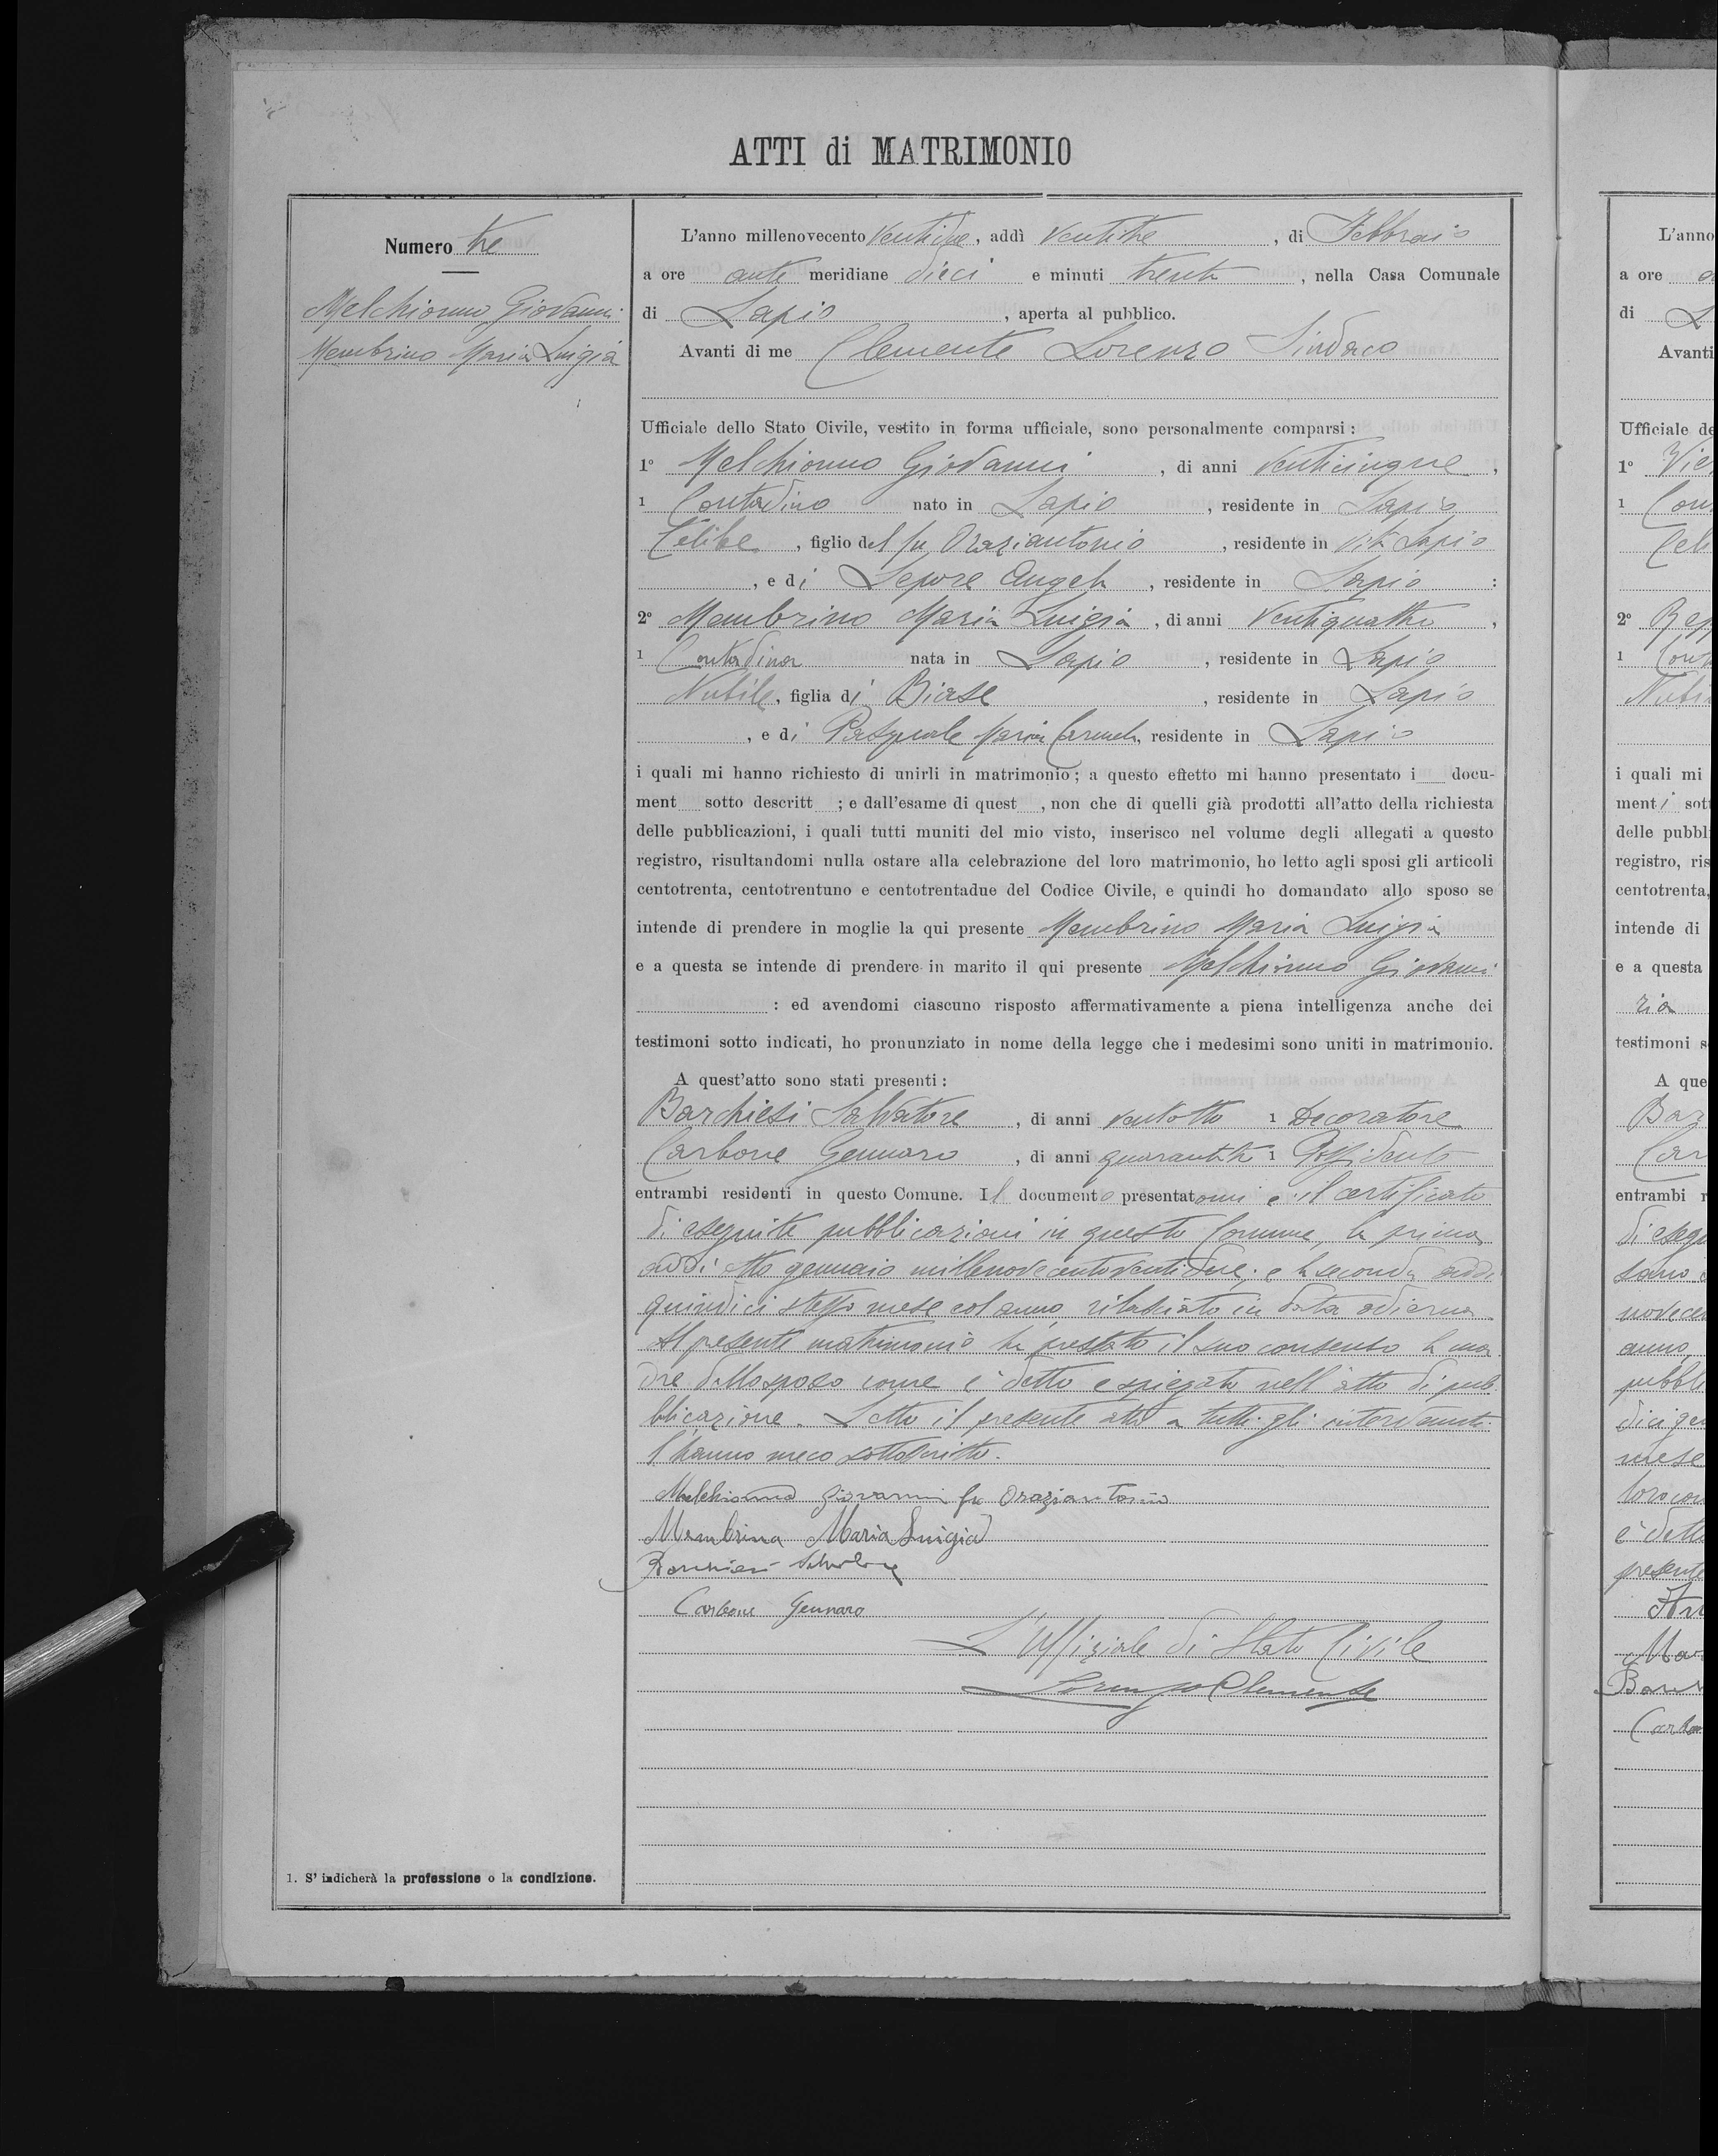 ATTI di MATRIMONIO
Numero tre
Melchionno Giovanni
Membrino Maria Luigia
L'anno millenovecento ventidue, addì ventitre, di Febbraio
a ore ante meridiane dieci e minuti trenta, nella Casa Comunale
di Lapio, aperta al pubblico.
Avanti di me Clemente Lorenzo Sindaco
Ufficiale dello Stato Civile, vestito in forma ufficiale, sono personalmente comparsi :
1° Melchionno Giovanni, di anni venticinque,
1 Contadino nato in Lapio, residente in Lapio
Celibe, figlio del fu Oraziantonio, residente in vita Lapio
, e di Lepore Angela, residente in Lapio :
2° Membrino Maria Luigia, di anni ventiquattro,
1 Contadina nata in Lapio, residente in Lapio
Nubile, figlia di Biase, residente in Lapio
, e di Pasquale Maria Carmela, residente in Lapio
i quali mi hanno richiesto di unirli in matrimonio ; a questo effetto mi hanno presentato i docu-
ment sotto descritt ; e dall'esame di quest , non che di quelli già prodotti all'atto della richiesta
delle pubblicazioni, i quali tutti muniti del mio visto, inserisco nel volume degli allegati a questo
registro, risultandomi nulla ostare alla celebrazione del loro matrimonio, ho letto agli sposi gli articoli
centotrenta, centotrentuno e centotrentadue del Codice Civile, e quindi ho domandato allo sposo se
intende di prendere in moglie la qui presente Membrino Maria Luigia
e a questa se intende di prendere in marito il qui presente Melchionno Giovanni
: ed avendomi ciascuno risposto affermativamente a piena intelligenza anche dei
testimoni sotto indicati, ho pronunziato in nome della legge che i medesimi sono uniti in matrimonio.
A quest'atto sono stati presenti :
Barchiesi Salvatore, di anni ventotto 1 Decoratore
Carbone Gennaro, di anni quarantatre 1 Possidente
entrambi residenti in questo Comune. Il documento presentatomi è il certificato
di eseguite pubblicazioni in questo Comune, la prima
addì otto gennaio millenovecentoventidue; e la seconda addì
quindici stesso mese ed anno, rilasciato in data odierna
Al presente matrimonio ha prestato il suo consenso la ma
dre dello sposo come è detto e spiegato nell'atto di pub-
blicazione. Letto il presente atto a tutti gli intervenuti
l'hanno meco sottoscritto.
Melchionno Giovanni fu Oraziantonio
Membrina Maria Luigia
Barchiesi Salvatore
Carbone Gennaro
L'Uffiziale di Stato Civile
Lorenzo Clemente
1. S' indicherà la professione o la condizione.
L'anno
a ore a
di L
Avanti
Ufficiale de
1° Vic
1 Con
Cel
2° Rap
1 Con
Nubi
i quali mi
menti sott
delle pubbl
registro, ris
centotrenta,
intende di
e a questa
ria
testimoni s
A que
Bar
Car
entrambi r
di esegu
novece
anno,
pubbli
dici gen
mese
loro con
è detto
presente
Mar
Bar
Carbo